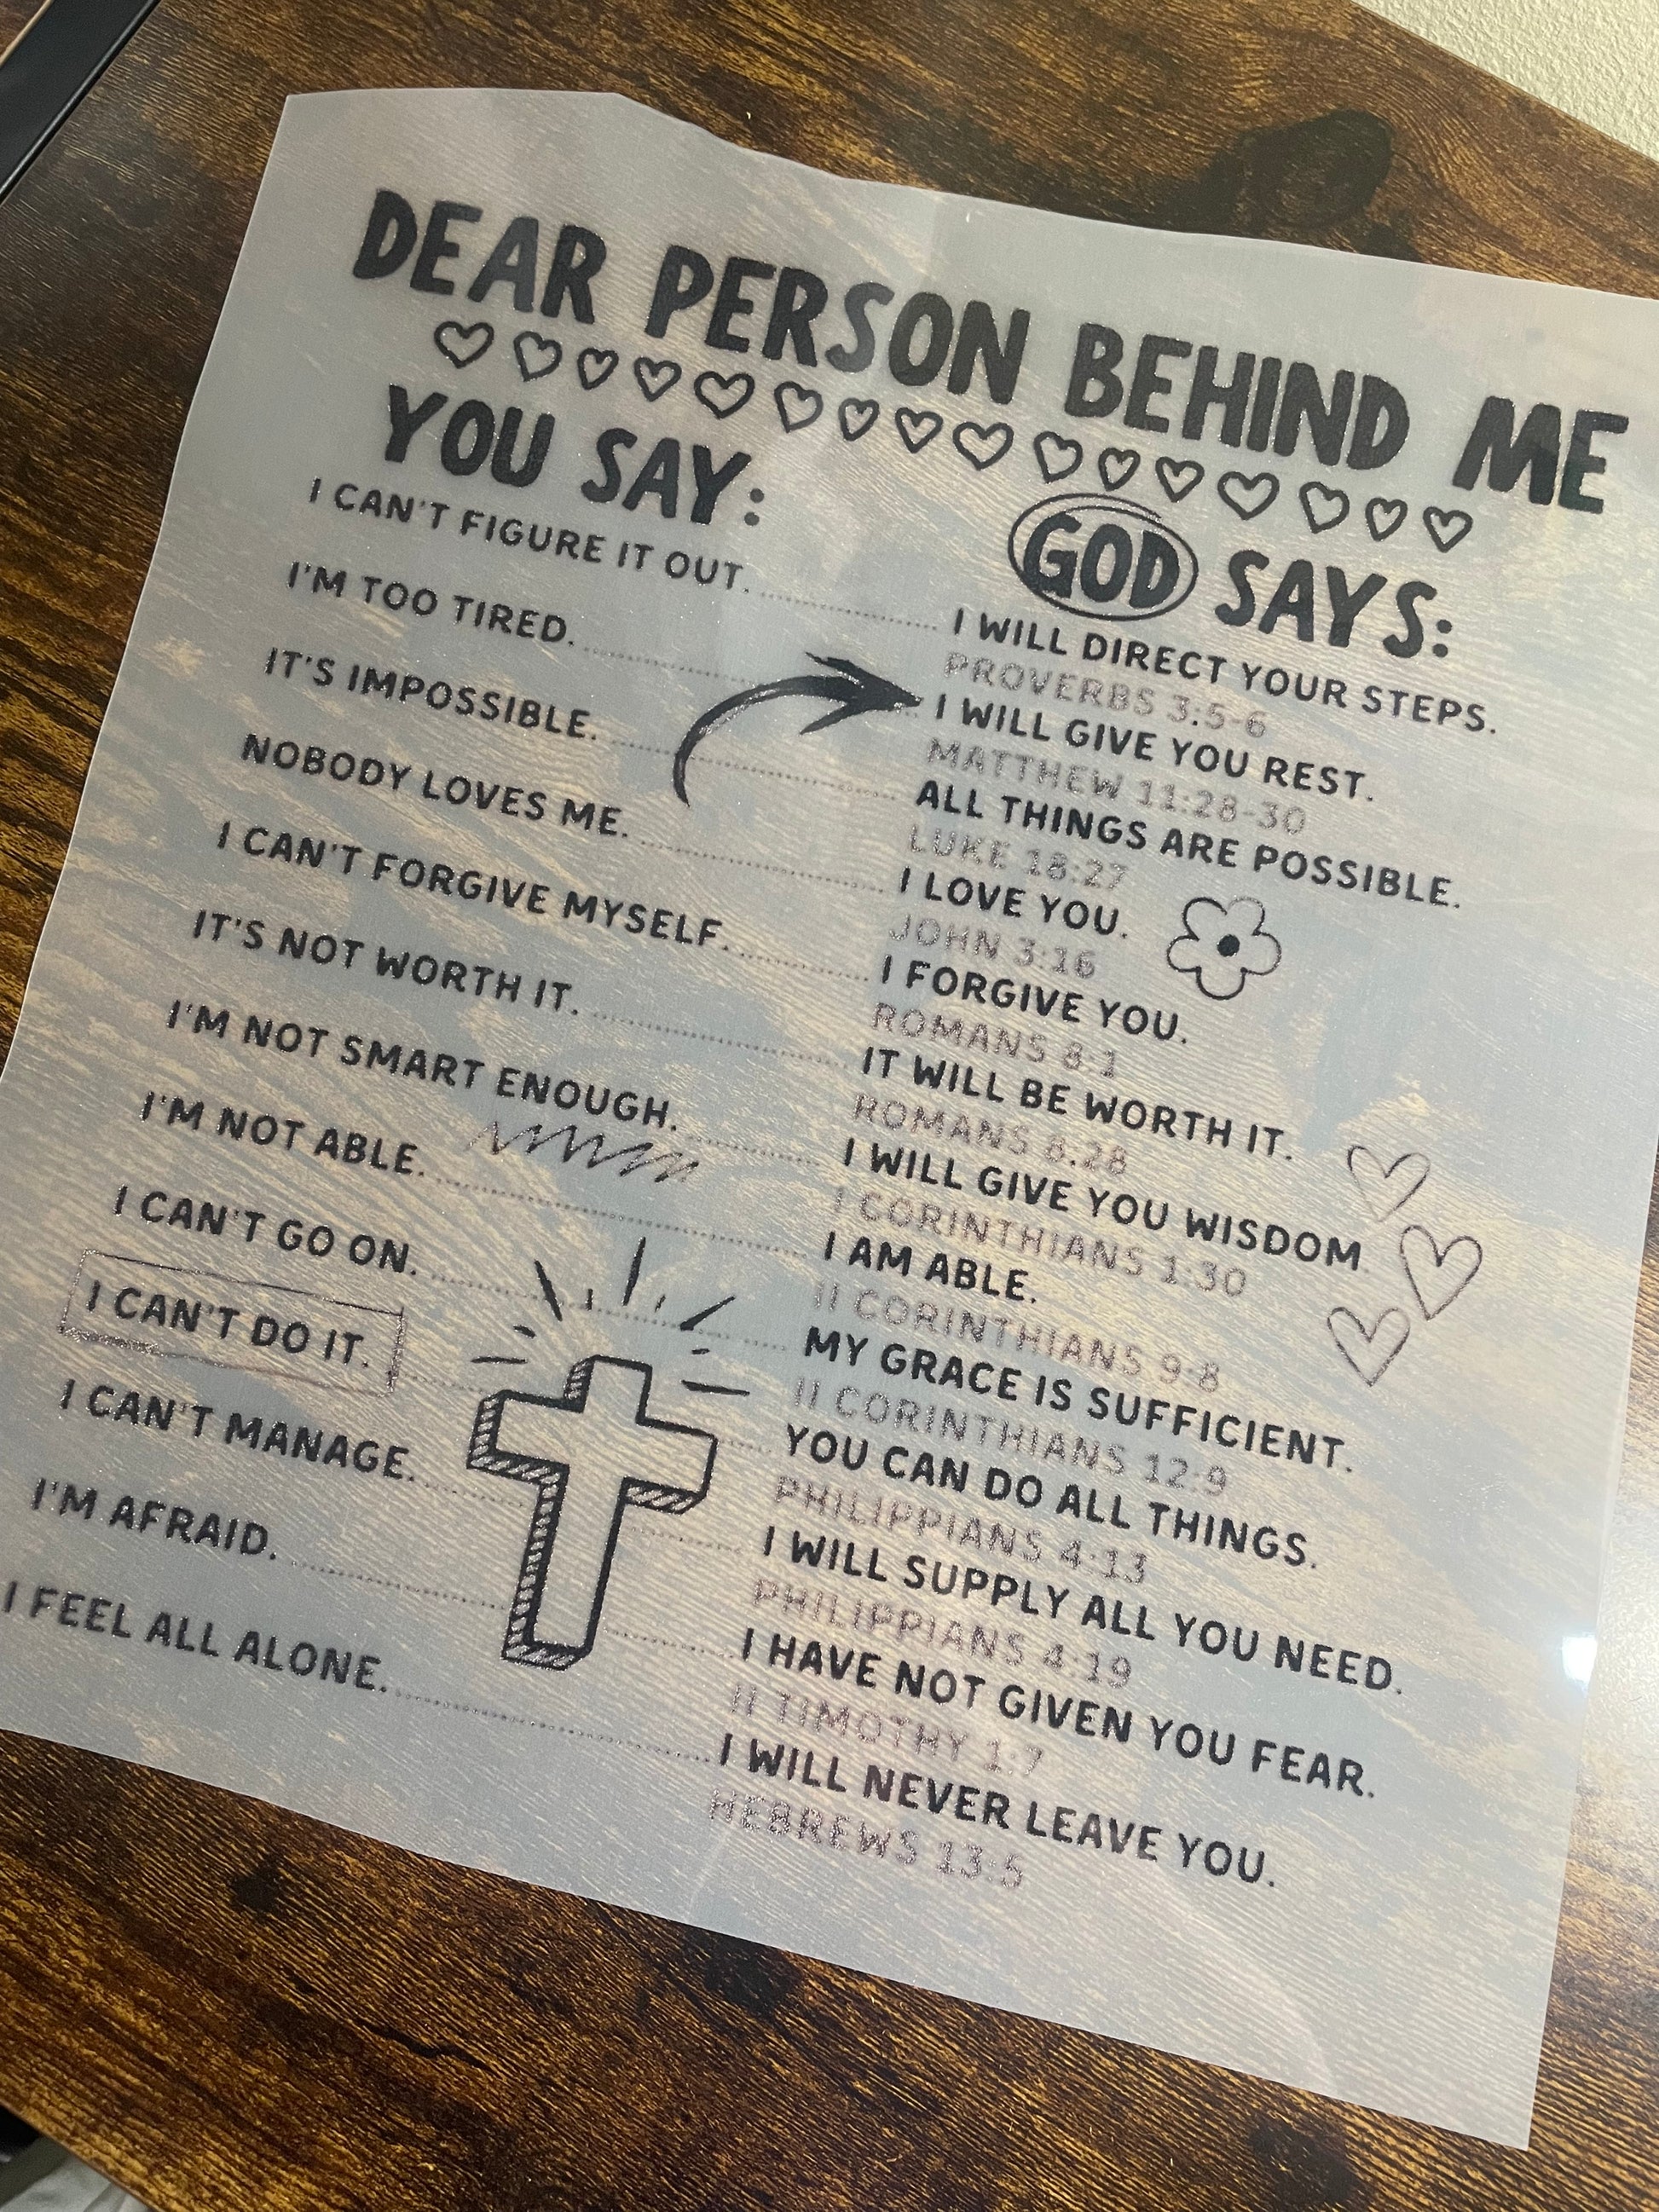 DEAR PERSON BEHIND ME
YOU SAY:
GOD SAYS:
I CAN'T FIGURE IT OUT.
I WILL DIRECT YOUR STEPS.
PROVERBS 3:5-6
I'M TOO TIRED.
I WILL GIVE YOU REST.
MATTHEW 11:28-30
IT'S IMPOSSIBLE.
ALL THINGS ARE POSSIBLE.
LUKE 18:27
NOBODY LOVES ME.
I LOVE YOU.
JOHN 3:16
I CAN'T FORGIVE MYSELF.
I FORGIVE YOU.
ROMANS 8:1
IT'S NOT WORTH IT.
IT WILL BE WORTH IT.
ROMANS 8:28
I'M NOT SMART ENOUGH.
I WILL GIVE YOU WISDOM.
I CORINTHIANS 1:30
I'M NOT ABLE.
I AM ABLE.
II CORINTHIANS 9:8
I CAN'T GO ON.
MY GRACE IS SUFFICIENT.
II CORINTHIANS 12:9
I CAN'T DO IT.
YOU CAN DO ALL THINGS.
PHILIPPIANS 4:13
I CAN'T MANAGE.
I WILL SUPPLY ALL YOU NEED.
PHILIPPIANS 4:19
I'M AFRAID.
I HAVE NOT GIVEN YOU FEAR.
II TIMOTHY 1:7
I FEEL ALL ALONE.
I WILL NEVER LEAVE YOU.
HEBREWS 13:5